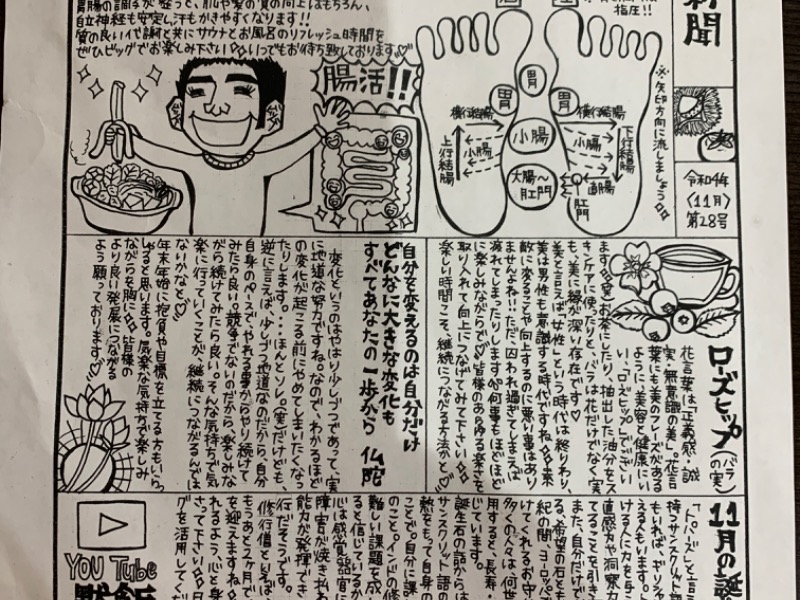 新聞
令和4年
〈11月〉
第28号
指圧!!
※矢印方向に流しましょう
胃
胃
胃
横行結腸
横行結腸
小腸
小腸
小腸
上行結腸
下行結腸
大腸〜
肛門
直腸
肛門
自立神経も安定し汗もかきやすくなります!!
質の良いイビ謝と共にサウナとお風呂のリフレッシュ時間を
ぜひビッグでお楽しみ下さい いつでもお待ち致しております♡
腸活!!
ローズヒップ(バラの実)
花言葉は「正義感・誠
実・無意識の美」。花言
葉にも美のフレーズがある
ように、美容と健康にいい
い、「ローズヒップ」でござい
ます(笑)お茶にしたり、抽出した油分をス
キンケアに使ったりと、バラは花だけでなく実
も、美に縁が深い存在です♡
美と言えば、女性」という時代は終わり、
美は男性も意識する時代ですね 素
敵に変ることや向上するのに悪い事はあり
ませんよね!!ただ、囚われ過ぎてしまえば
疲れてしまったりします 何事もほどほど
に楽しみながらで♡皆様のあらゆる楽さを
取り入れて向上につなげてみて下さい
楽しい時間こそ、継続につながる方法かと♡
自分を変えるのは自分だけ
どんなに大きな変化も
すべてあなたの一歩から 仏陀
変化というのはやはり少しづつであって、実
に地道な努力ですね。なので、わかるほど
の変化が起こる前にやめてしまいたくなっ
たりします。・・・ほんとソレ。(実)だけども、
逆に言えば、少しづつ地道なのだから、自分
自身のペースで、やれる事からやり続けて
みたら良い。競争でないのだから、楽しみな
がら続けてみたら良い。そんな気持ちで気
楽に行っていくことが、継続につながるんでは
ないかなと♡
年末年始に抱負や目標を立てる方もいらっ
しゃると思います。気楽な気持ちで楽しみ
ながらを胸に 皆様の
より良い発展につながる
よう願っております♡
11月の誕
「トパーズ」と言う
持つサンスクリット語
もいれば、ギリシャ
えるんもいます。
ける人に力を与え
直感力や洞察力
てることを引き
また、自分だけで
る、希望の石とも
紀の間、ヨーロッパ
けてくれるお守
多くの人々は何世
用すると、長寿・
じています。
誕生石の話からは
サンスクリット語の
熱をもって自身の
ことで。自分に課
のこと。インドの修
難しい課題を成
ると信じているか
心は感覚器官に
障害が焼き払わ
能力が発揮でき
行だそうです。
修行僧といえば、
もうあと2ヶ月で
を迎えますね
れるよう、心と
さって下さい 日
グを活用してくだ
YouTube